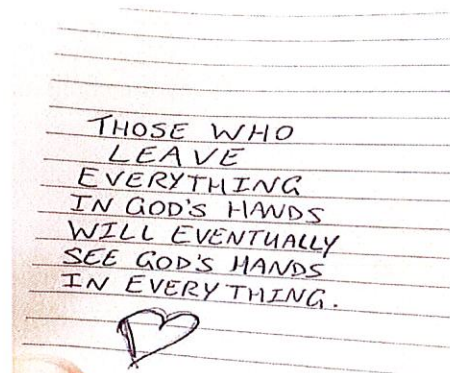 THOSE WHO
LEAVE
EVERYTHING
IN GOD'S HANDS
WILL EVENTUALLY
SEE GOD'S HANDS
IN EVERYTHING.